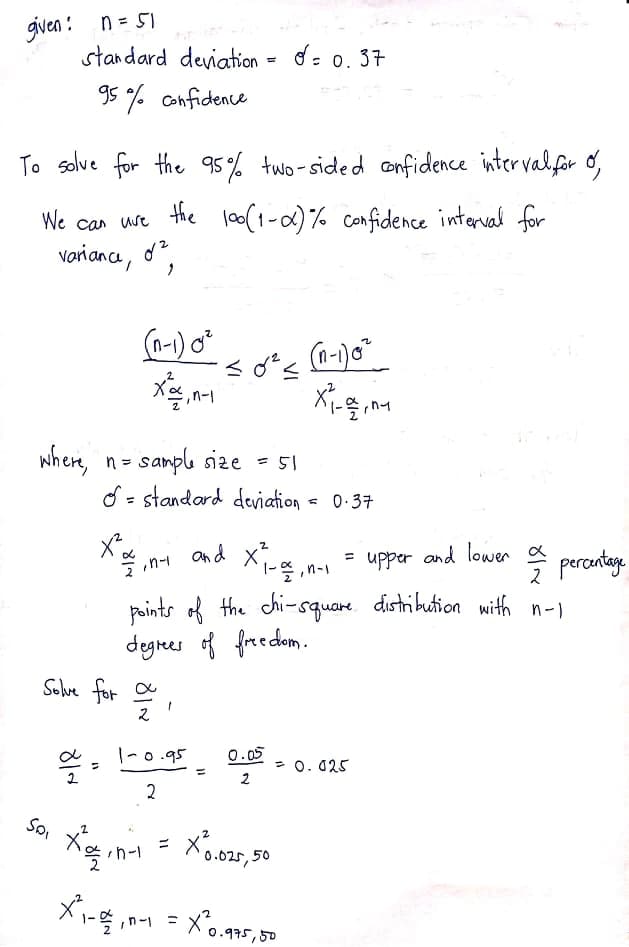 given: n = 51
standard deviation = σ = 0.37
95 % confidence
To solve for the 95% two-sided confidence interval for σ,
We can use the 100(1-α)% confidence interval for
variance, σ²,
(n-1)σ²/X²_{α/2, n-1} ≤ σ² ≤ (n-1)σ²/X²_{1-α/2, n-1}
where, n = sample size = 51
σ = standard deviation = 0.37
X²_{α/2, n-1} and X²_{1-α/2, n-1} = upper and lower α/2 percentage
points of the chi-square distribution with n-1
degrees of freedom.
Solve for α/2,
α/2 = (1-0.95)/2 = 0.05/2 = 0.025
So, X²_{α/2, n-1} = X²_{0.025, 50}
X²_{1-α/2, n-1} = X²_{0.975, 50}